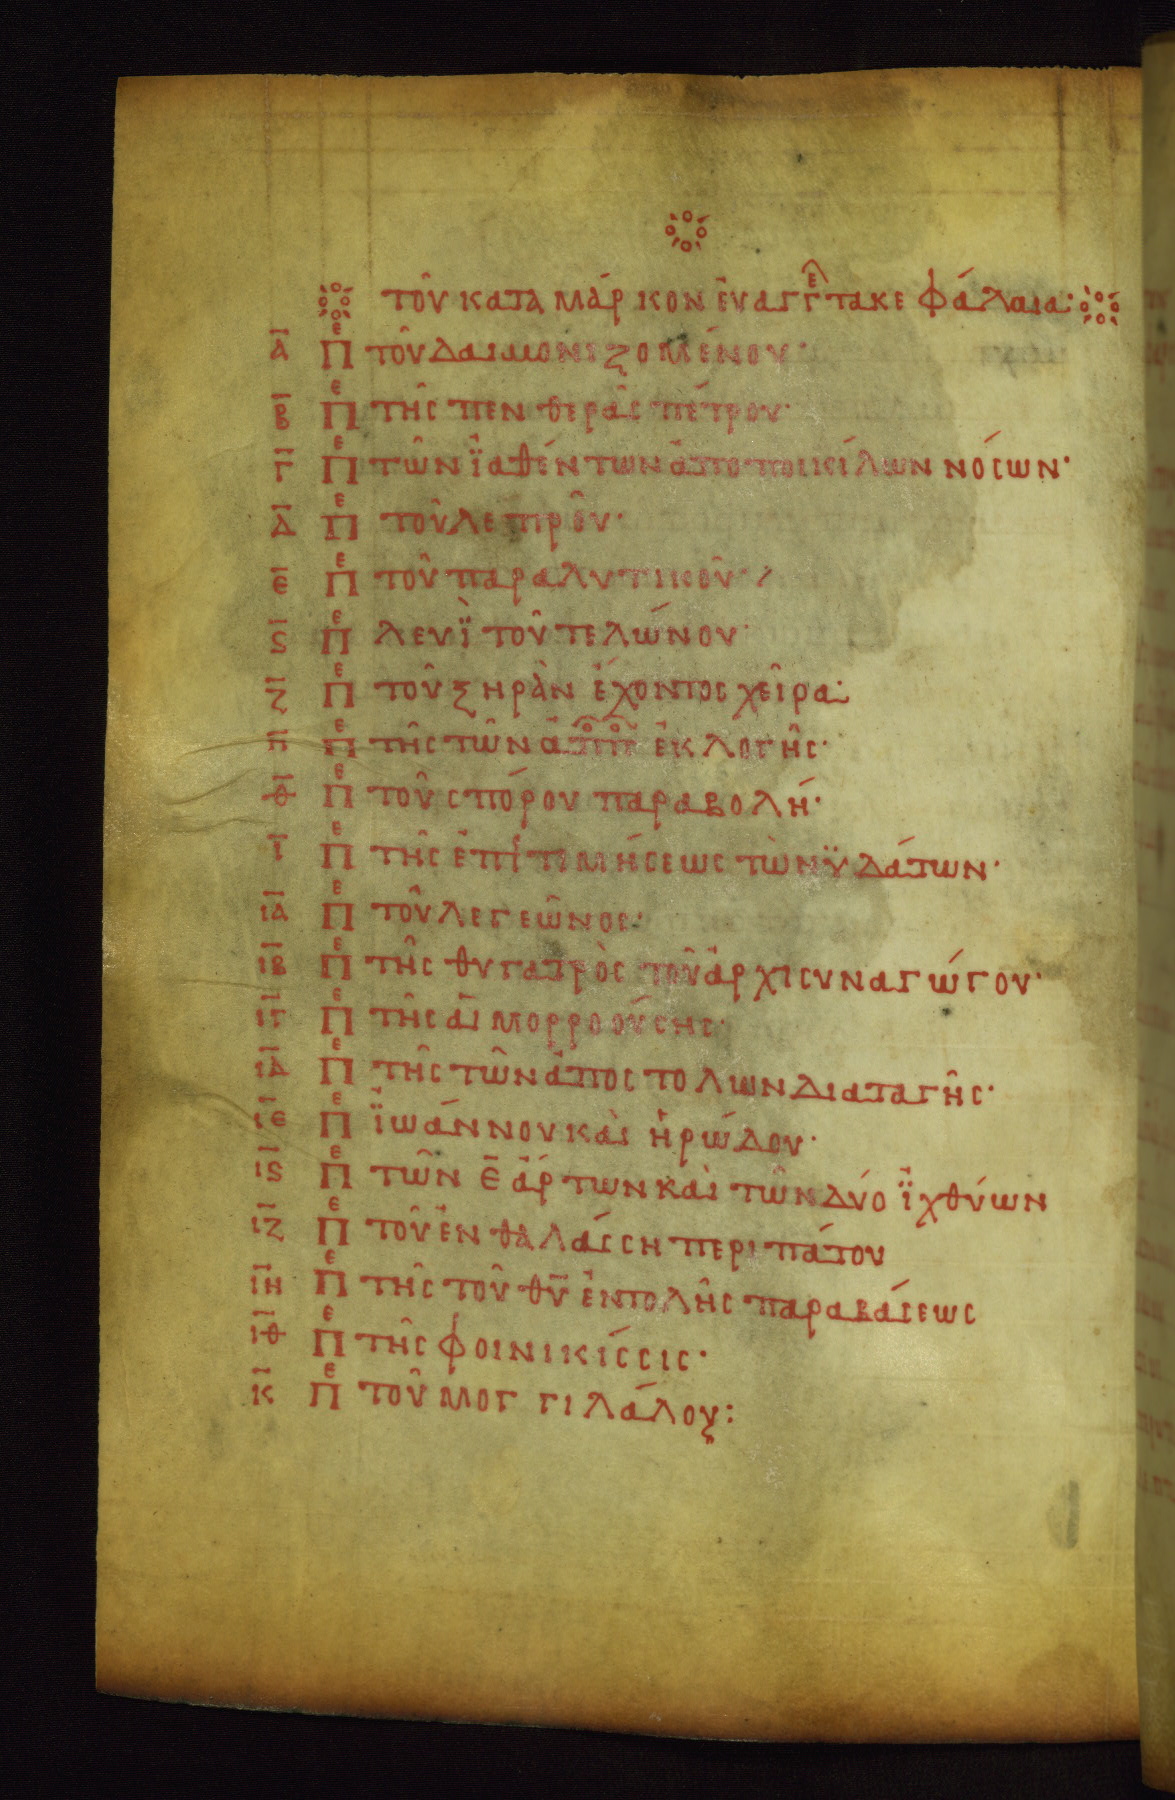 τοῦ κατα μάρκον ἐυαγγε τα κεφάλαια·
Α πε τοῦ δαιμονιζομένου·
Β πε τῆς πενθερᾶς πέτρου·
Γ πε τῶν ϊαθέντων ἀπο ποικίλων νόσων·
Δ πε τοῦ λεπροῦ·
Ε πε τοῦ παραλυτικοῦ·
Ϛ πε λευϊ τοῦ τελώνου·
Ζ πε τοῦ ξηρὰν ἔχοντος χεῖρα·
Η πε τῆς τῶν ἀπ ἐκλογῆς·
Θ πε τοῦ σπόρου παραβολή·
Ι πε τῆς ἐπιτομήσεως τῶν ϋδάτων·
ΙΑ πε τοῦ λεγεῶνος·
ΙΒ πε τῆς θυγατρὸς τοῦ ἀρχισυναγώγου·
ΙΓ πε τῆς αἱμορροούσης·
ΙΔ πε τῆς τῶν ἀποστολων διαταγῆς·
ΙΕ πε ϊωάννου καὶ ἡρώδου·
ΙϚ πε τῶν ε̄ ἄρτων καὶ τῶν δύο ϊχθύων
ΙΖ πε τοῦ ἐν θαλάσση περιπάτου
ΙΗ πε τῆς τοῦ θυ̅ ἐντολῆς παραβάσεως
ΙΘ πε τῆς φοινικίσσις·
Κ πε τοῦ μογγιλάλου: